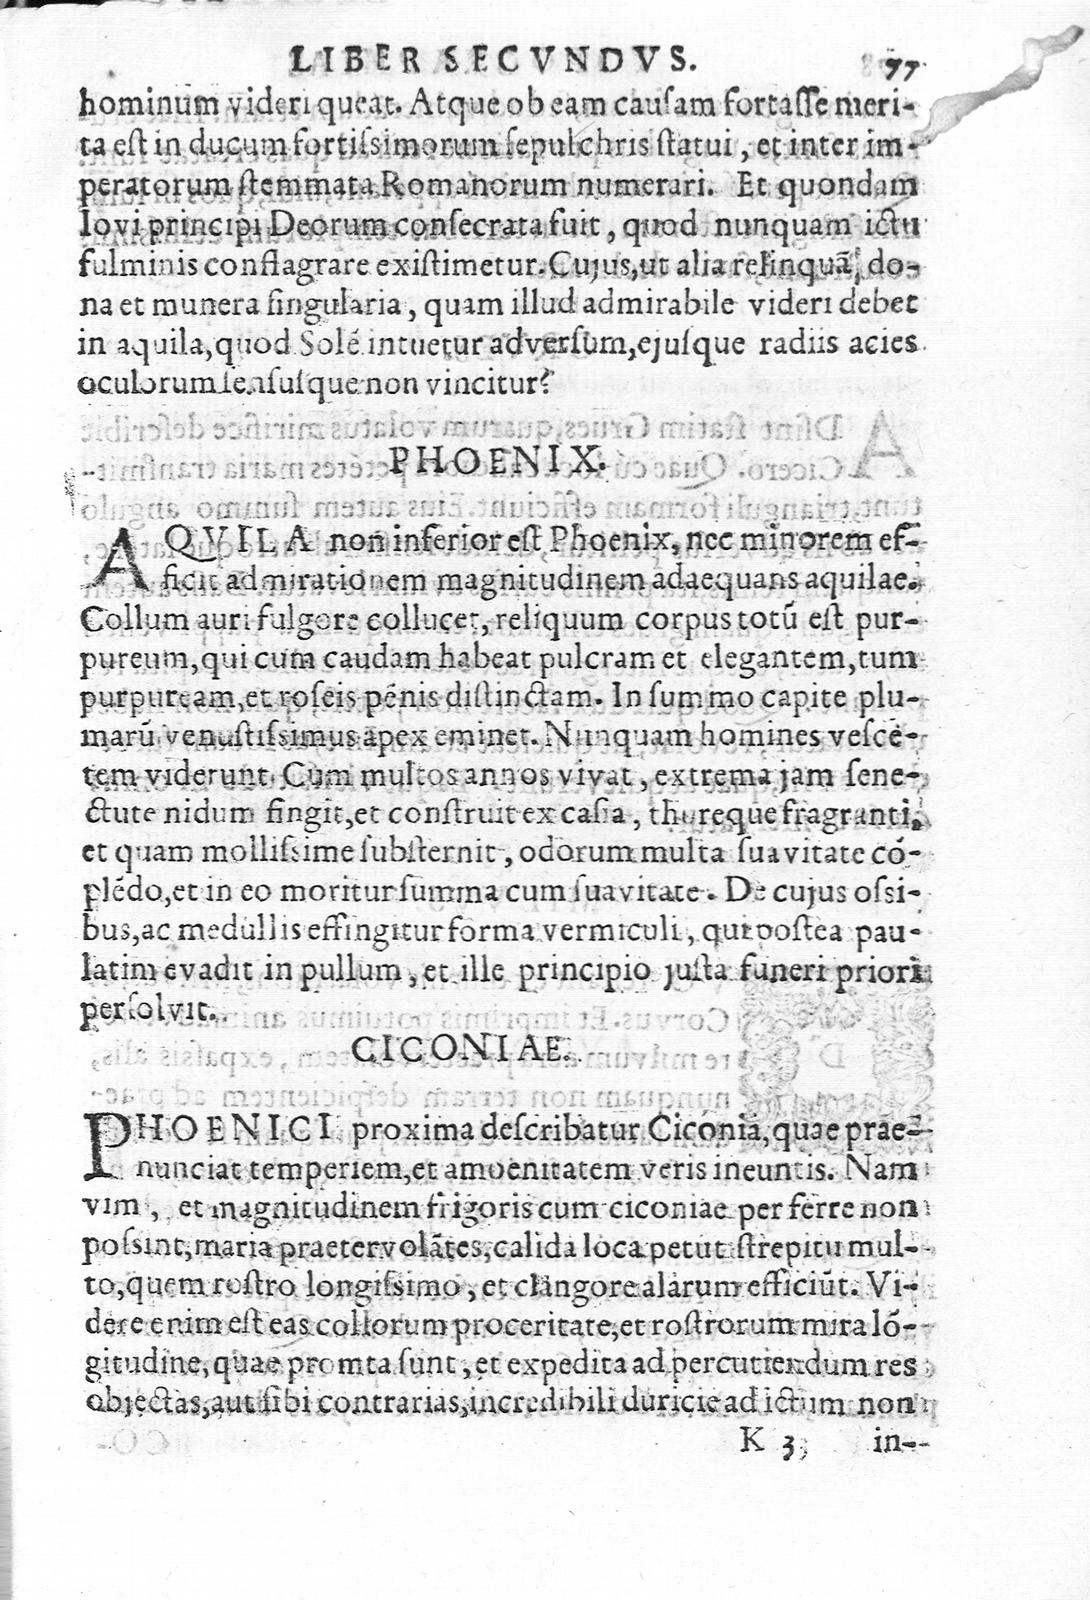 LIBER SECVNDVS. 77
hominum videri queat. Atque ob eam cauſam fortaſſe meri-
ta eſt in ducum fortiſsimorum ſepulchris ſtatui, et inter im-
peratorum ſtemmata Romanorum numerari. Et quondam
Iovi principi Deorum conſecrata fuit, quod nunquam ictu
fulminis conflagrare exiſtimetur. Cujus, ut alia relinquã, do-
na et munera ſingularia, quam illud admirabile videri debet
in aquila, quod Solẽ intuetur adverſum, ejuſque radiis acies
oculorum ſenſuſque non vincitur?
PHOENIX.
AQVILA non inferior eſt Phoenix, nec minorem ef-
ficit admirationem magnitudinem adaequans aquilae.
Collum auri fulgore collucet, reliquum corpus totũ eſt pur-
pureum, qui cum caudam habeat pulcram et elegantem, tum
purpuream, et roſeis pẽnis diſtinctam. In ſummo capite plu-
marũ venuſtiſsimus apex eminet. Nunquam homines veſcẽ-
tem viderunt. Cum multos annos vivat, extrema jam ſene-
ctute nidum fingit, et conſtruit ex caſia, thureque fragranti,
et quam molliſsime ſubſternit, odorum multa ſuavitate cõ-
plẽdo, et in eo moritur ſumma cum ſuavitate. De cujus oſsi-
bus, ac medullis effingitur forma vermiculi, qui poſtea pau-
latim evadit in pullum, et ille principio juſta funeri priori
perſolvit.
CICONIAE.
PHOENICI proxima deſcribatur Ciconia, quae prae-
nunciat temperiem, et amoenitatem veris ineuntis. Nam
vim, et magnitudinem frigoris cum ciconiae perferre non
poſsint, maria praetervolãtes, calida loca petut ſtrepitu mul-
to, quem roſtro longiſsimo, et clangore alarum efficiũt. Vi-
dere enim eſt eas collorum proceritate, et roſtrorum mira lõ-
gitudine, quae promta ſunt, et expedita ad percutiendum res
objectas, aut ſibi contrarias, incredibili duricie ad ictum non
K 3 in-